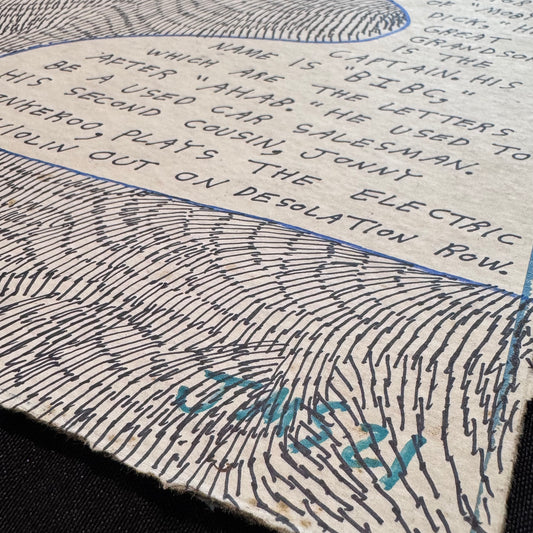 DICK. H
GREAT
GRANDSON
IS THE
CAPTAIN. HIS
NAME IS "BIBG,"
WHICH ARE THE LETTERS
AFTER "AHAB." HE USED TO
BE A USED CAR SALESMAN.
HIS SECOND COUSIN, JONNY
NKEROU, PLAYS THE ELECTRIC
VIOLIN OUT ON DESOLATION ROW.
JMS 21